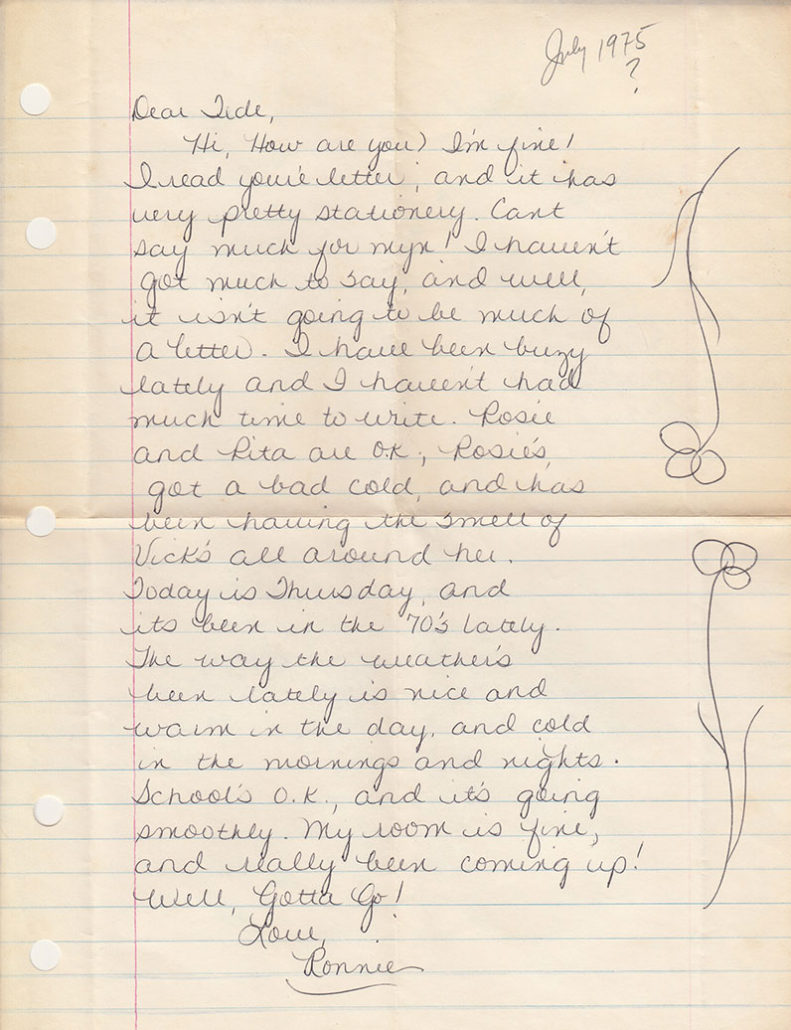 July 1975
?
Dear Tede,
Hi, How are you? I'm fine!
I read you're letter, and it has
very pretty stationery. Cant
say much for myn! I haven't
got much to say, and well,
it isn't going to be much of
a letter. I have been buzy
lately and I haven't had
much time to write. Rosie
and Rita are O.K., Rosie's
got a bad cold, and has
been having the smell of
Vick's all around her.
Today is Thursday, and
its been in the 70's lately.
The way the weather's
been lately is nice and
warm in the day, and cold
in the mornings and nights.
School's O.K., and it's going
smoothly. My room is fine,
and really been coming up!
Well, Gotta Go!
Love,
Ronnie